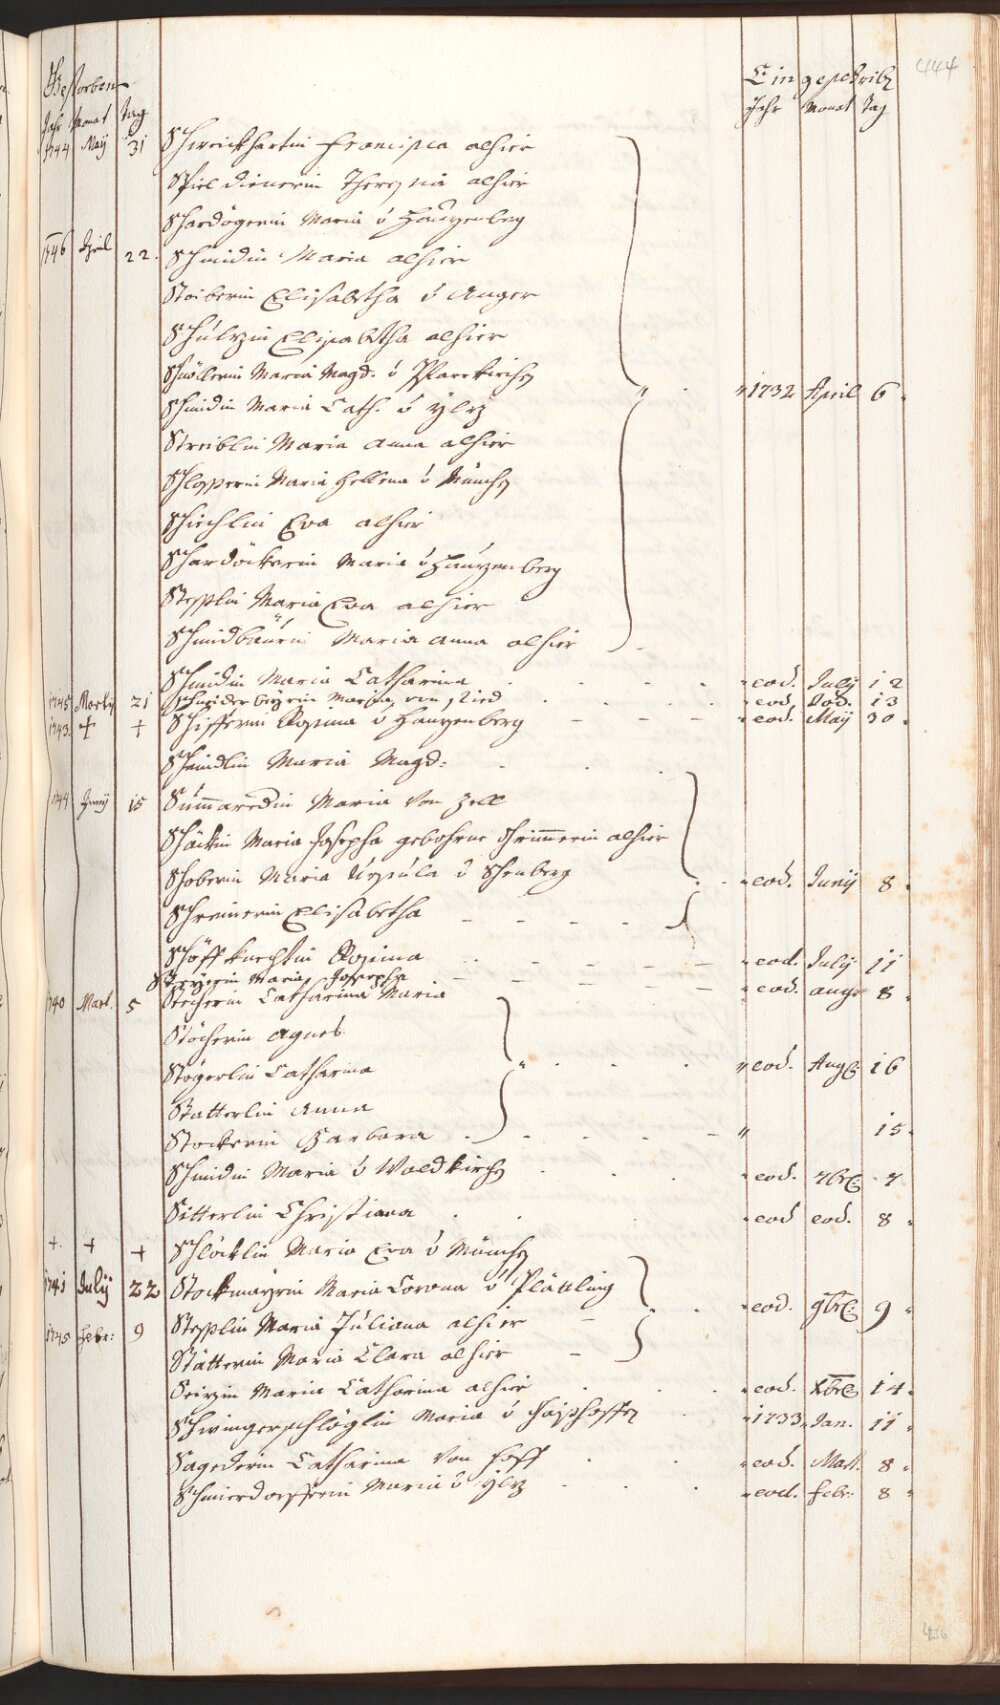 444
Gestorben
Jahr Monat Tag
Eingeschrib
Jahr Monat Tag
1744 May 31 Schwerckhartin Francisca alhier
Spieldienerin Theresia alhier
Schardögerin Maria v Hauzenberg
1746 April 22. Schmidin Maria alhier
Stoiberin Elisabetha v Anger
Schülzin Elisabetha alhier
Schnöllerin Maria Magd. v Pfarrkirch
" 1732 April 6.
Schmidin Maria Cath. v Ylz
Streiblin Maria Anna alhier
Schlosserin Maria Hellena v Münch
Schiechlin Eva alhier
Schardöckerin Maria v Hauzenberg
Stepplin Maria Eva alhier
Schmidbäurin Maria Anna alhier
Schmidin Maria Catharina " eod. July 12
1745 Marty 21 Schneiderbeyrin Maria von Ried " eod. eod. 13
1743. + + Schifferin Rosina v Hauzenberg " eod. May 30.
Schmidlin Maria Magd:
1744 Juny 15 Summaredin Maria von Zell
Schöckin Maria Josepha gebohrne Grimmerin alhier
Schoberin Maria Ursula v Schenberg " eod. Juny 8.
Schreinerin Elisabetha
Schöffknechtin Rosina " eod. July 11
Steyrin Maria Josepha " eod. Augu 8.
1740 Mart. 5 Stecherin Catharina Maria
Stöcherin Agnes
Stögerlin Catharina " eod. Aug 16
Statterlin Anna
Stockerin Barbara " 15.
Schmidin Maria v Waldkirch " eod. 7br 7
Sitterlin Christiana " eod eod. 8.
+. + + Schlöcklin Maria Eva v Münch
1741 July 22 Stockmayrin Maria Corona v Plättling
" eod. 9br 9.
1745 Febr: 9 Stepplin Maria Juliana alhier
Stätterin Maria Clara alhier
Seizin Maria Catharina alhier " eod. Xbr 14.
Schwingerschläglin Maria v " 1733. Jan. 11.
Sagederin Catharina von Hoff " eod. Mart. 8.
Schmierdorfferin Maria v Ylz " eod. Febr. 8.